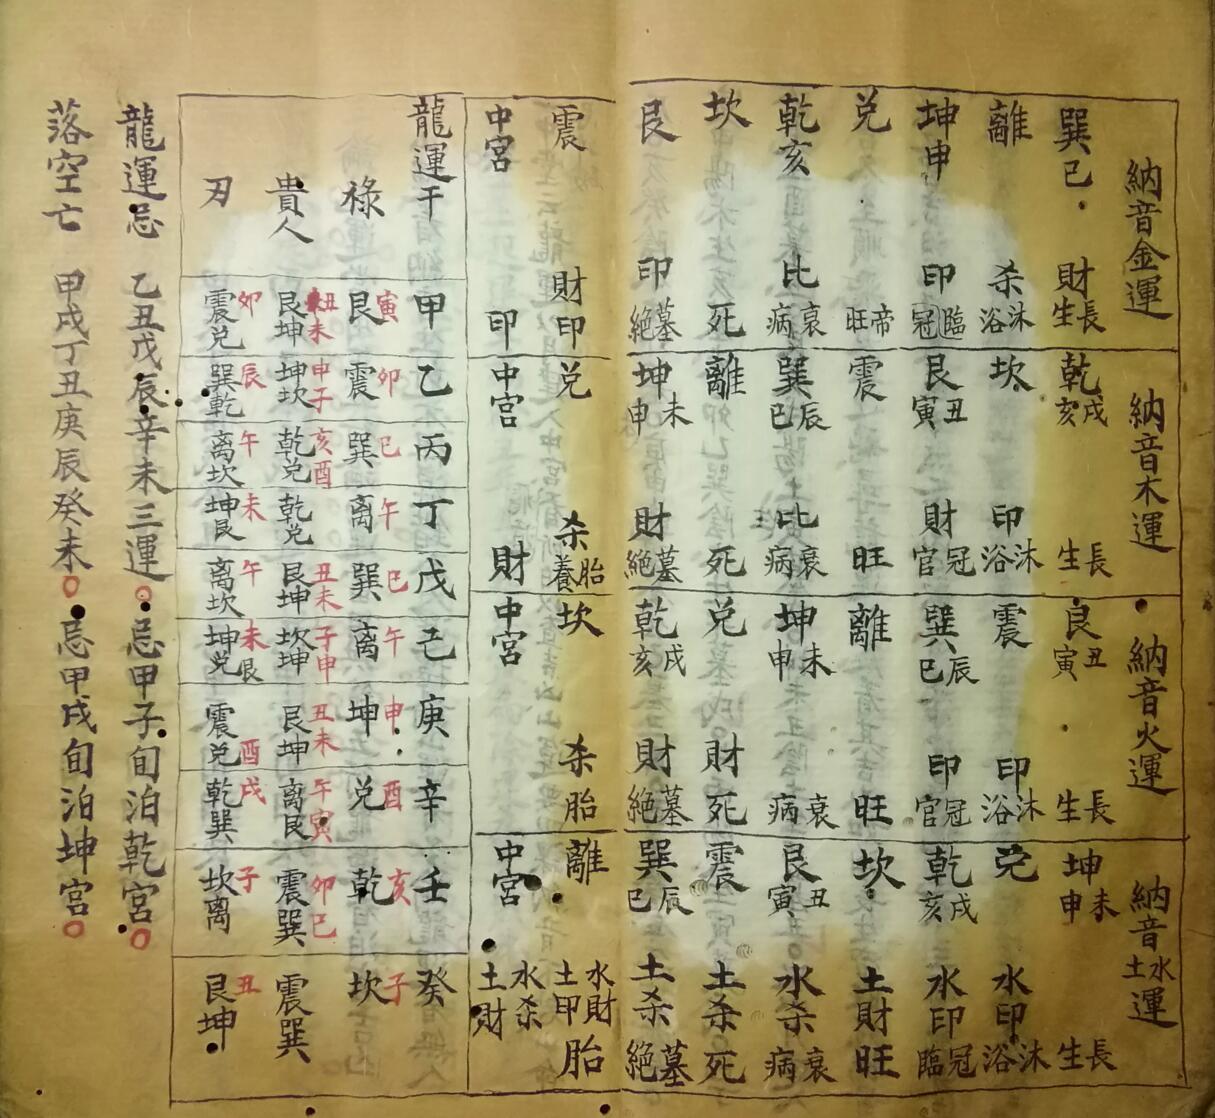 納音金運
巽巳 財 長生
離 杀 沐浴
坤申 印 臨冠
兑 帝旺
乾亥 比 衰病
坎 死
艮 印 墓絕
震 財印
中宮 印
納音木運
乾戌亥 長生
坎 印 沐浴
艮丑寅 財 冠官
震 旺
巽辰巳 比 衰病
離 死
坤未申 財 墓絕
兑 杀 胎養
中宮 財
納音火運
艮丑寅 長生
震 印 沐浴
巽辰巳 印 冠官
離 旺
坤未申 衰病
兑 財 死
乾戌亥 財 墓絕
坎 杀 胎
中宮
納音水土運
坤未申 長生
兑 水印 沐浴
乾戌亥 水印 冠臨
坎 土財 旺
艮丑寅 水杀 衰病
震 土杀 死
巽辰巳 土杀 墓絕
離 水財土印 胎
中宮 水杀土財
龍運干 甲 乙 丙 丁 戊 己 庚 辛 壬 癸
祿 寅艮 卯震 巳巽 午离 巳巽 午离 申坤 酉兑 亥乾 子坎
貴人 丑未艮坤 申子坤坎 亥酉乾兑 乾兑 丑未艮坤 子申坎坤 丑未艮坤 午寅离艮 卯巳震巽 震巽
刃 卯震兑 辰巽乾 午离坎 未坤艮 午离坎 未坤艮兑 酉震兑 戌乾巽 子坎离 丑艮坤
龍運忌 乙丑戊辰辛未三運○忌甲子旬泊乾宮○
落空亡 甲戌丁丑庚辰癸未○忌甲戌旬泊坤宮○